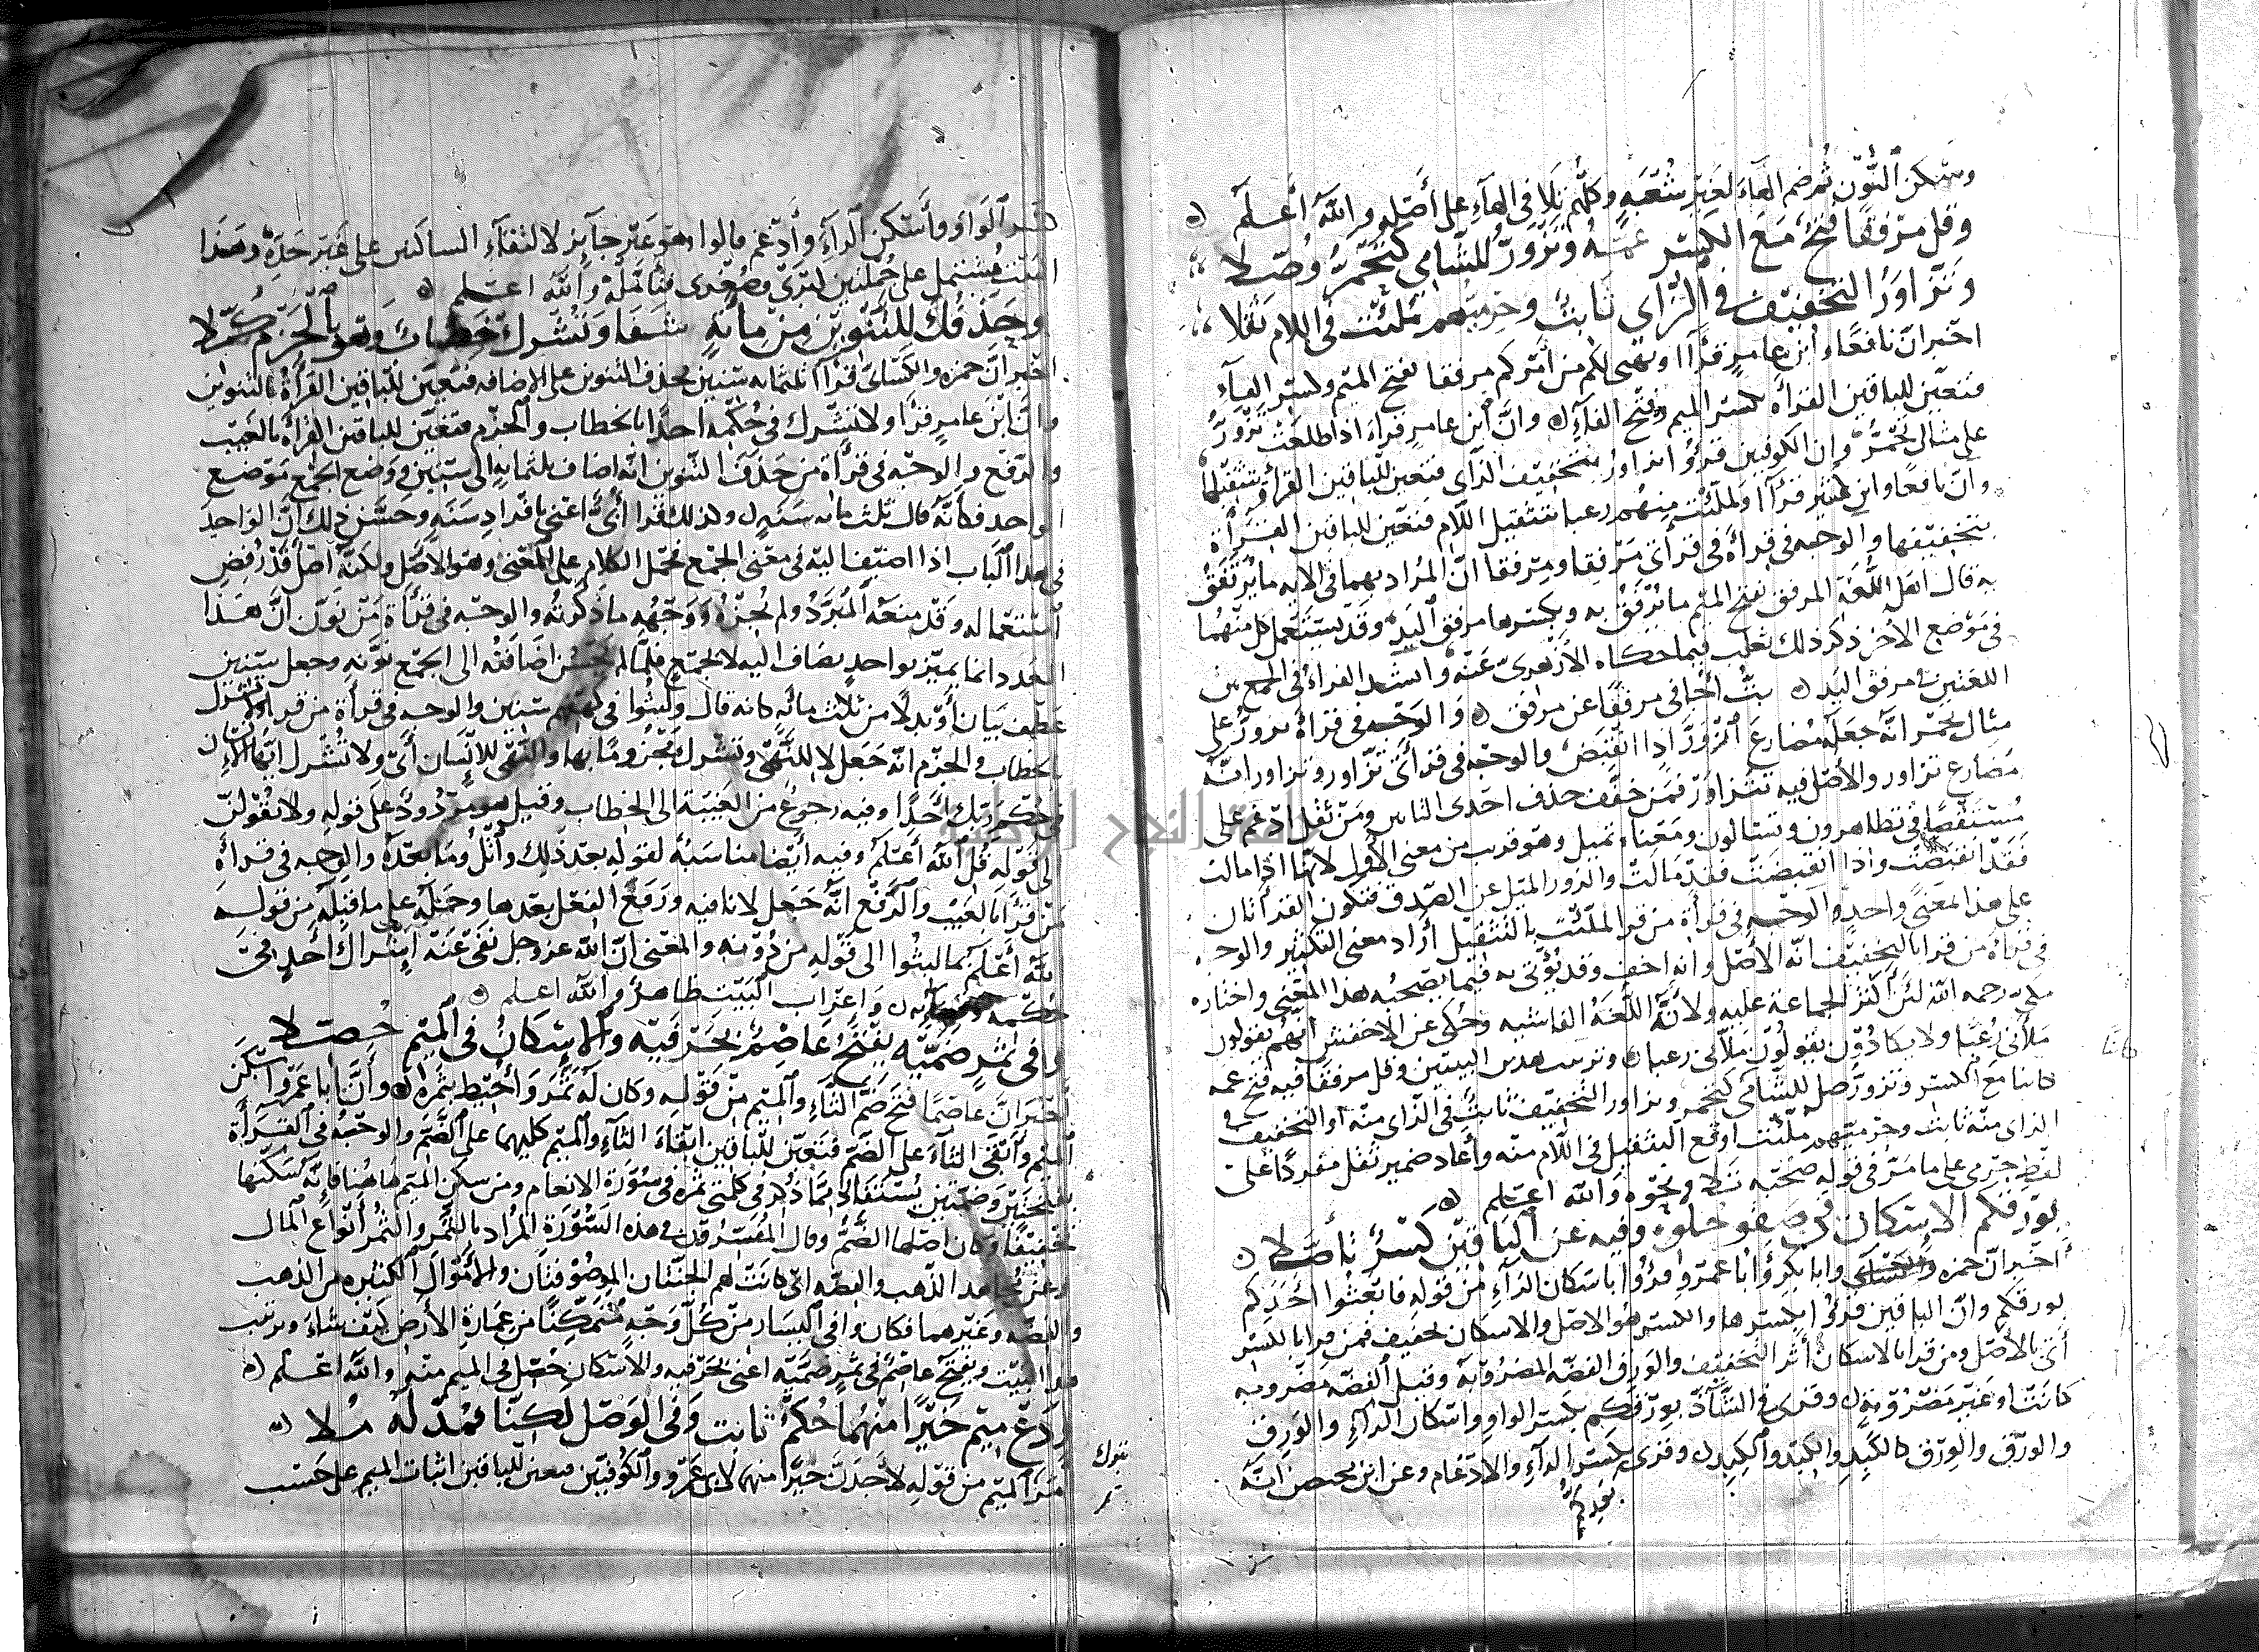 وسكن النون ثم ضم الهاء لغير شعبة وكلهم تلا في الهاء على أصله والله أعلم
وقل مرفقا فتح مع الكسر عمه وتزور للشامي كتحمر وصلا
وتزاور التخفيف في الزاي ثابت وحرميهم ملئت في اللام ثقلا
اخبر ان نافعا وابن عامر قرآ ويهيئ لكم من امركم مرفقا بفتح الميم وكسر الفاء
فتعين للباقين القراءة بكسر الميم وفتح الفاء وان ابن عامر قراء اذا طلعت تزور
على مثال تحمر وان الكوفيين قرؤا تزاور بتخفيف الزاي فتعين للباقين القراءة بتثقيلها
وان نافعا وابن كثير قرآ ولملئت منهم رعبا بتثقيل اللام فتعين للباقين القراءة
بتخفيفها والوجه في قراءة في قراءتي مرفقا ومرفقا ان المراد بهما في الاية ما يرتفق
به قال اهل اللغة المرفق بفتح الميم ما يرتفق به وبكسرها مرفق اليد وقد يستعمل كل منهما
في موضع الاخر ذكر ذلك ثعلب فيما حكاه الازهري عنه وانشد الفراء في الجمع بين
اللغتين في مرفق اليد بت اجافي مرفقا عن مرفق والوجه في قراءة تزور على
مثال تحمر انه جعله مضارع ازور اذا انقبض والوجه في قراءتي تزاور وتزاور انه
مضارع تزاور والاصل فيه تتزاور فمن خفف حذف احدى التاءين ومن ثقل ادغم على
مستقصا في تظاهرون وتساءلون ومعناه تميل وهو قريب من معنى الاول لانها اذا مالت
فقد انقبضت واذا انقبضت فقد مالت والزور الميل عن الصدق فتكون القراءتان
على هذا المعنى واحد والوجه في قراءة من قرا لملئت بالتثقيل أراد معنى التكثير والوجه
في قراءة من قرا بالتخفيف انه الاصل وانه اخف وقد يؤتى به فيما يصحبه هذا المعنى واختاره
مكي رحمه الله لأن اكثر الجماعة عليه ولأنه اللغة الفاشية وحكى عن الاخفش انهم يقولون
ملأتني رعبا ولا يكادون يقولون ملأتني رعبا وترتيب هذين البيتين وقل مرفقا فيه فتح عمه
كائنا مع الكسر وتزور صل للشامي كتحمر وتزاور التخفيف ثابت في الزاي منه أو التخفيف في
الزاي منه ثابت وحرميهم ملئت اوقع التثقيل في اللام منه وأعاد ضمير ثقل مفردا على
لفظ حرمي على ما مر في قوله صحبته تلا ونحوه والله اعلم
بورقكم الاسكان في صفو حلوه وفيه عن الباقين كسر تأصلا
أخبر ان حمزة وابا بكر وأبا عمرو قرؤا باسكان الراء من قوله فابعثوا احدكم
بورقكم وان الباقين قرؤا بكسرها والكسر هو الاصل والاسكان تخفيف فمن قرا بالكسر
أتى بالاصل ومن قرا بالاسكان أثر التخفيف والورق الفضة المضروبة وقيل الفضة مضروبة
كانت او غير مضروبة وقرئ في الشاذ بورقكم بكسر الواو واسكان الراء والورق
والورق والورق كالكبد والكبد والكبد وقرئ بكسر الراء والادغام وعن ابن محيصن انه
كسر الواو وأسكن الراء وأدغم قالوا وهو غير جائز لالتقاء الساكنين على غير حده وهذا
البيت مشتمل على جملتين كبرى وصغرى فتأمله والله اعلم
وحذفك للتنوين من مائة شفا وتشرك خطاب وهو بالجزم كملا
اخبر ان حمزة والكسائي قرآ ثلثمائة سنين بحذف التنوين على الاضافة فتعين للباقين القراءة بالتنوين
وان ابن عامر قرا ولا تشرك في حكمه احدا بالخطاب والجزم فتعين للباقين القراءة بالغيب
والرفع والوجه في قراءة من حذف التنوين انه اضاف ثلثمائة الى سنين ووضع الجمع موضع
الواحد فكأنه قال ثلث مائة سنة وكذلك قرا أبي اعني بافراد سنة وحسن ذلك ان الواحد
في هذا الباب اذا اضيف اليه في معنى الجمع فحمل الكلام على المعنى وهو الاصل ولكنه أصل قد رفض
استعماله وقد منعه المبرد ولم يجزه ووجهه ما ذكرته والوجه في قراءة من نون ان هذا
العدد انما يميز بواحد يضاف اليه لا بجمع فلما لم يحسن اضافته الى الجمع نونه وجعل سنين
عطف بيان أو بدلا من ثلاث مائة كانه قال ولبثوا في كهفهم سنين والوجه في قراءة من قرا ولا تشرك
بالخطاب والجزم انه جعل لا للنهي وتشرك مجزوما بها والنهي للانسان أي ولا تشرك ايها الانسان
في حكم ربك احدا وفيه رجوع من الغيبة الى الخطاب وقيل هو مردود على قوله ولا تقولن
الى قوله قل الله أعلم وفيه أيضا مناسبة لقوله بعد ذلك واتل وما بعده والوجه في قراءة
من قرا بالغيب والرفع انه جعل لا نافية ورفع الفعل بعدها وحمله على ما قبله من قوله
الله أعلم بما لبثوا الى قوله من دونه والمعنى ان الله عز وجل نفى عنه اشراك احد في
حكمه واعراب البيت ظاهر والله اعلم
وفي ثمر ضميه يفتح عاصم بحرفيه والاسكان في الميم حصلا
أخبر ان عاصما فتح ضم الثاء والميم من قوله وكان له ثمر وأحيط بثمره وأن أبا عمرو اسكن
الميم وأبقى الثاء على الضم فتعين للباقين ابقاء الثاء والميم كليهما على الضم والوجه في القراءة
بفتحتين وضمتين يستفاد مما ذكر في كلمتي ثمره في سورة الانعام ومن سكن الميم هاهنا فانه سكنها
تخفيفا وكان اصلها الضم وقال المفسرون في هذه السورة المراد بالثمر والثمر أنواع المال
وعن مجاهد الذهب والفضة اي كانت لهم الجنتان الموصوفتان والأموال الكثيرة من الذهب
والفضة وغيرهما فكان وافي اليسار من كل وجه متمكنا من عمارة الأرض كيف شاء وترتيب
هذا البيت ويفتح عاصم في ثمر ضميه اعني بحرفيه والاسكان حصل في الميم منه والله اعلم
ودع ميم خيرا منهما حكم ثابت وفي الوصل لكنا فمد له ملا
من الميم من قوله لأجدن خيرا منهما لأبي عمرو والكوفيين فتعين للباقين اثبات الميم على حسب